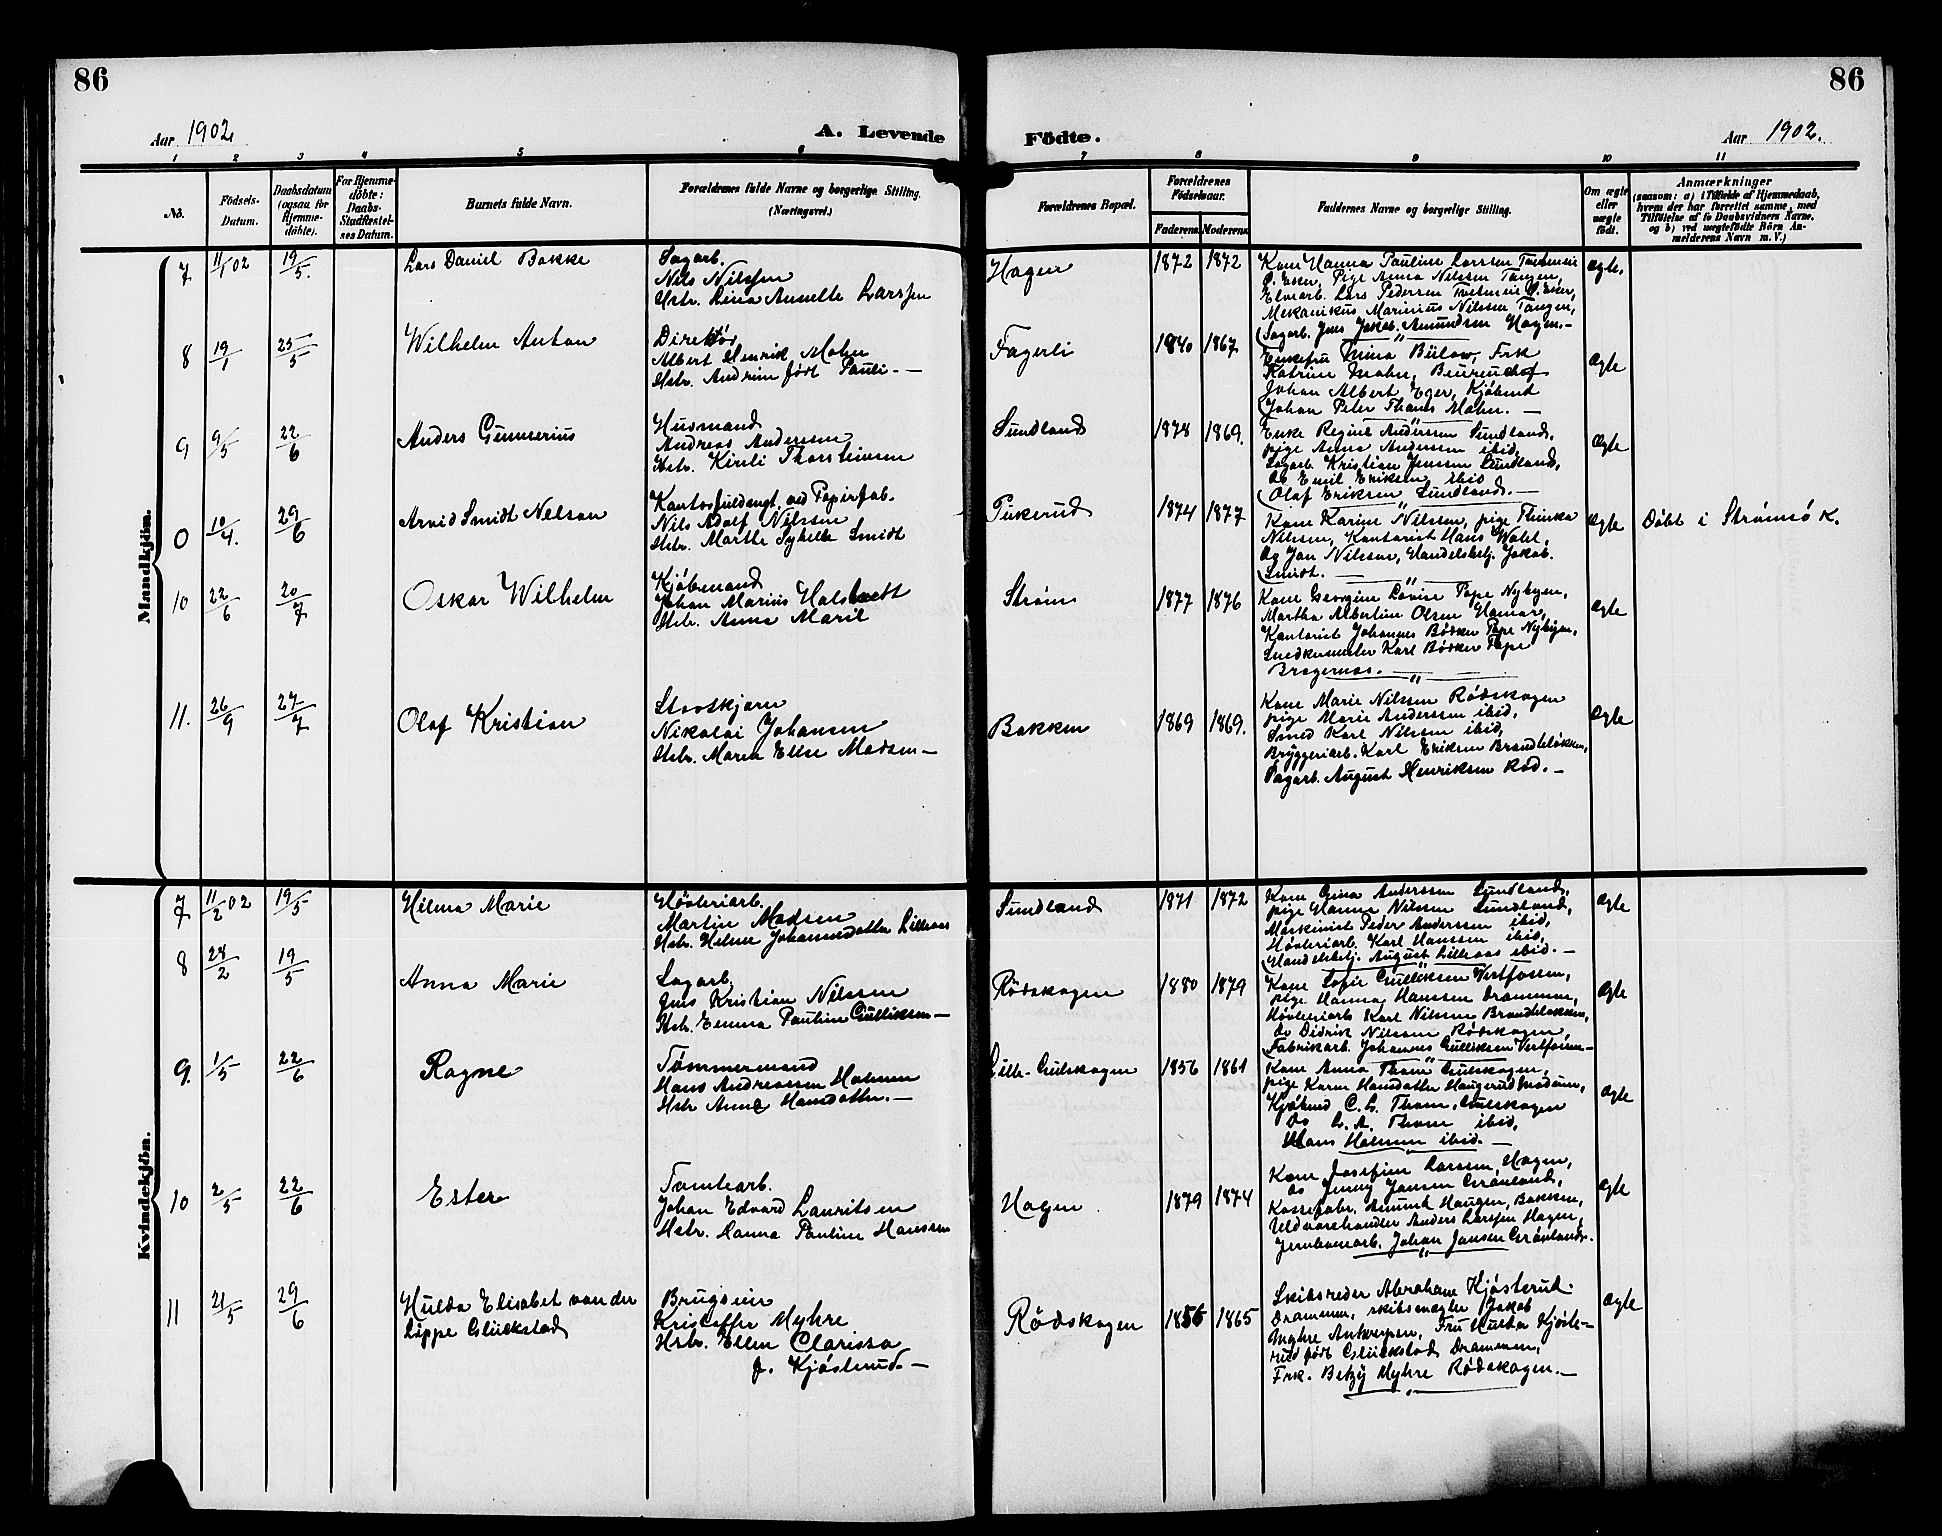 86
86
Aar 1902
A. Levende
Födte.
Aar 1902.
1 2 3 4 5 6 7 8 9 10 11
No.
Födsels-
Datum.
Daabsdatum
(ogsaa for
Hjemme-
döbte).
For Hjemme-
döbte:
Daabs-
Stadfæstel-
ses Datum.
Barnets fulde Navn.
Forældrenes fulde Navne og borgerlige Stilling.
(Næringsvei.)
Forældrenes Bopæl.
Forældrenes
Födselsaar.
Faderens. Moderens.
Faddernes Navne og borgerlige Stilling.
Om ægte
eller
uægte
født.
Anmærkninger
(saasom: a) i Tilfælde af Hjemmedaab,
hvem der har forrettet samme, med
Tilföielse af to Daabsvidners Navne,
og b) ved uægtefödte Börn An-
melderens Navn m. V.)
Mandkjön.
7 11/1 02 19/5 Lars Daniel Bakke
Sagarb.
Nils Nilssen
Hstr. Lina Annette Larssen
Hagen 1872 1872
Kone Hanna Pauline Larssen
Ø. Eker, Pige Anna Nilssen Tangen,
Elvearb. Lars Pedersen Ø. Eker,
Mekanikus Marinius Nilssen Tangen,
Sagarb. Jens Jakob Amundsen Hagen.—
Ægte,
8 19/1 25/5 Wilhelm Anton
Direktør
Albert Henrik Mohn
Hstr. Andrine født Pauli.—
Fagerli 1840 1867
Enkefru Mina Bülow, Frk
Katrine Mohn,
Johan Albert Eger, Kjøbmd
Johan Peter Mohn.—
Ægte
9 9/5 22/6 Anders Gunnerius
Husmand
Andreas Andersen
Hstr. Kirsti Thorsteinsen
Sundland 1878 1869.
Enke Regine Andersen Sundland,
pige Anna Andersen ibid,
Sagarb. Kristian Jensen Sundland,
Do Emil Eriksen ibid
Olaf Eriksen Sundland.—
Ægte
0 10/4. 29/6 Arvid Smidt Nelson
Kontorfuldmgt. ved Papirfab.
Nils Adolf Nilssen
Hstr. Marthe Smidt
Pukerud 1874 1877
Kone Karine Nilssen, pige Thinka
Nilssen, Kontorist Hans Wold,
Do Jon Nilssen, Handelsbetj. Jakob
Smidt.—
Ægte Døbt i Strømsø K.
10 22/6 20/7 Oskar Wilhelm
Kjøbmand
Johan Marius Holstvedt
Hstr. Anna Marie
Strøm 1877 1876
Kone Georgine Lovise Pape Nybyen,
Martha Albertine Olsen Hamar,
Kontorist Johannes Bødker Pape Nybyen,
Snedkermester Karl Bødker Pape
Bragernæs.—
Ægte
11. 26/9 27/7 Olaf Kristian
Stovskjører
Nikolai Johansen
Hstr. Maren Elise Madsen—
Bakken 1869 1869.
Kone Marie Nilssen Rødskogen
pige Marie Anderssen ibid,
Smed Karl Nilssen ibid,
Bryggeriarb. Karl Eriksen Brandteløkken,
Sagarb. August Henriksen Rød.—
Ægte
Kvindekjön.
7 11/2 02 19/5 Hilma Marie
Høvleriarb.
Martin Madsen
Hstr. Hilma Johannesdatter Lilleaas
Sundland 1871 1872
Kone Gina Anderssen Sundland,
pige Hanna Nilssen Sundland,
Maskinist Peder Anderssen ibid,
Høvleriarb. Karl Hanssen ibid,
Handelsbetj. August Lilleaas ibid.—
Ægte
8 24/2 19/5 Anna Marie
Sagarb.
Jens Kristian Nilssen
Hstr. Emma Pauline Gulliksen—
Rødskogen 1880 1879
Kone Sofie Gulliksen Vestfossen,
pige Hanna Hanssen Drammen,
Høvleriarb Karl Nilssen Brandteløkken,
Do Didrik Nilssen Rødskogen,
Fabrikarb. Johannes Gulliksen Vestfossen—
Ægte
9. 1/5 22/6 Ragne
Tømmermand
Hans Andreassen Holmen
Hstr Anne Hansdatter.—
Lille-Gulskogen 1856 1861
Kone Anna Thom Gulskogen,
pige Karen Hansdatter Haugerud Modum,
Kjøbmd C. L. Thom, Gulskogen
Do L. A. Thom ibid,
Hans Holmen ibid.—
Ægte
10 2/5 22/6 Ester
Tomtearb.
Johan Edvard Lauritsen
Hstr. Hanna Pauline Hanssen
Hagen 1879 1874
Kone Josefine Larssen, Hagen,
Do Jenny Jansen Grønland,
Kassefabr. Amund Haugen, Bakken,
Uldvarehandler Anders Larssen Hagen,
Jernbanearb. Johan Jansen Grønland.
Ægte
11 21/5 29/6 Hulda Elisabet van der
Lippe Glückstad
Brugseier
Kristoffer Myhre
Hstr. Ellen Clarissa
f. Kjøsterud.—
Rødskogen 1856 1865
Skibsreder Abraham Kjøsterud
Drammen, skibsmægler Jakob
Myhre Antwerpen, Fru Hulda Kjøste-
rud født Glückstad Drammen,
Frk. Betzy Myhre Rødskogen.—
Ægte